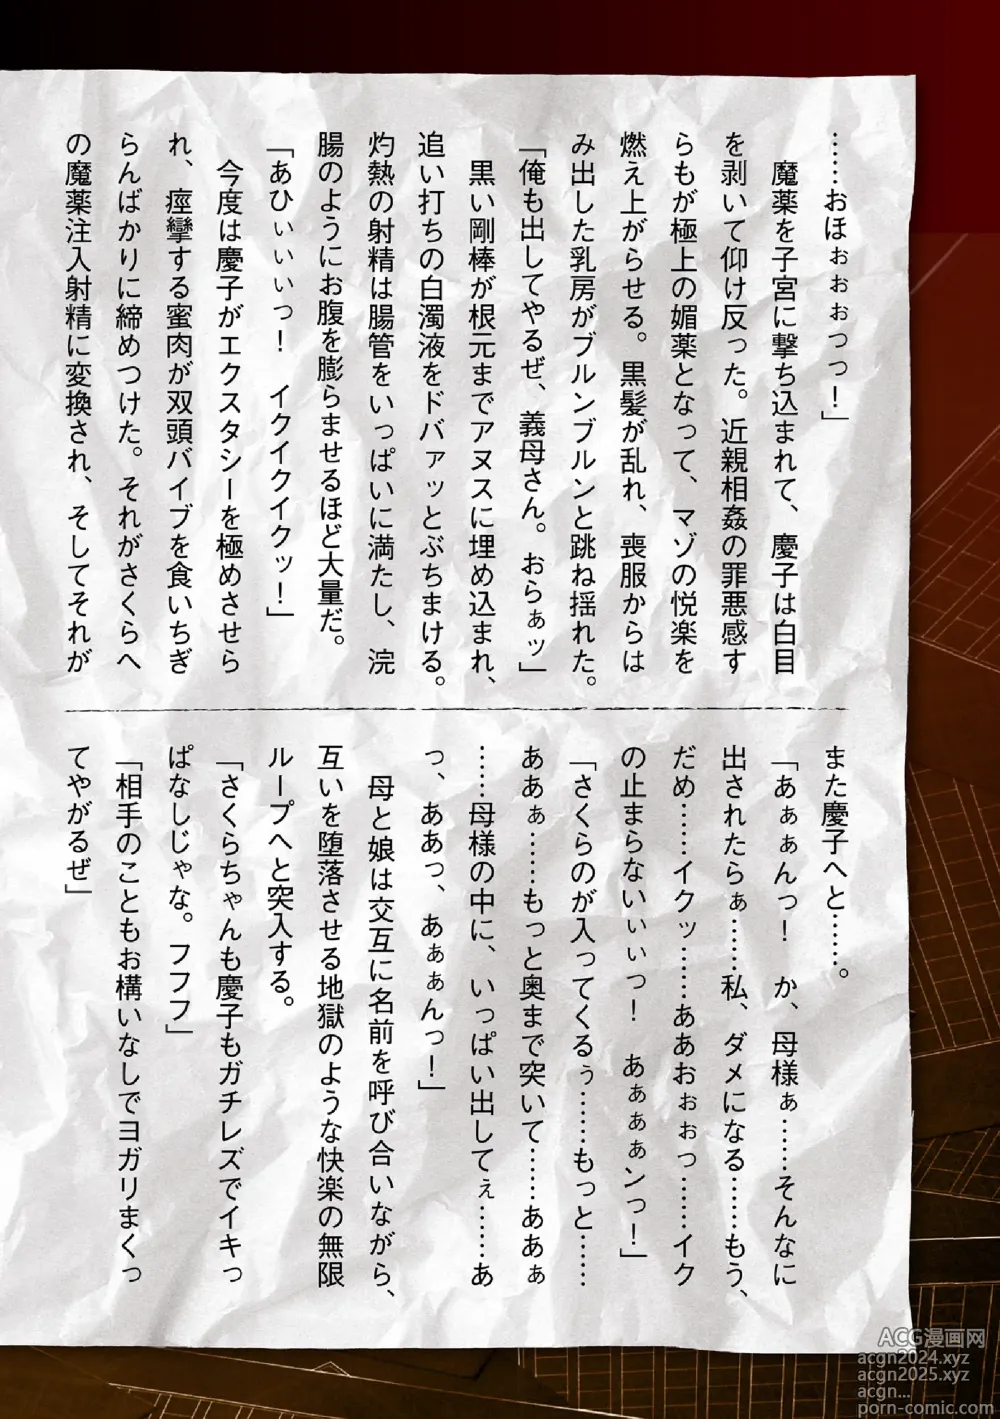 ……おほぉぉぉっっ！」
　魔薬を子宮に撃ち込まれて、慶子は白目
を剥いて仰け反った。近親相姦の罪悪感す
らもが極上の媚薬となって、マゾの悦楽を
燃え上がらせる。黒髪が乱れ、喪服からは
み出した乳房がブルンブルンと跳ね揺れた。
「俺も出してやるぜ、義母さん。おらぁッ」
　黒い剛棒が根元までアヌスに埋め込まれ、
追い打ちの白濁液をドバァッとぶちまける。
灼熱の射精は腸管をいっぱいに満たし、浣
腸のようにお腹を膨らませるほど大量だ。
「あひぃぃぃっ！　イクイクイクッ！」
　今度は慶子がエクスタシーを極めさせら
れ、痙攣する蜜肉が双頭バイブを食いちぎ
らんばかりに締めつけた。それがさくらへ
の魔薬注入射精に変換され、そしてそれが
また慶子へと……。
「あぁぁんっ！　か、母様ぁ……そんなに
出されたらぁ……私、ダメになる……もう、
だめ……イクッ……ああおぉぉっ……イク
の止まらないぃぃっ！　あぁぁぁンっ！」
「さくらのが入ってくるぅ……もっと……
ああぁ……もっと奥まで突いて……ああぁ
……母様の中に、いっぱい出してぇ……あ
っ、ああっ、あぁぁんっ！」
　母と娘は交互に名前を呼び合いながら、
互いを堕落させる地獄のような快楽の無限
ループへと突入する。
「さくらちゃんも慶子もガチレズでイキっ
ぱなしじゃな。フフフ」
「相手のこともお構いなしでヨガリまくっ
てやがるぜ」
ACG漫画网
acgn2024.xyz
acgn2025.xyz
acgn...
porn-comic.com